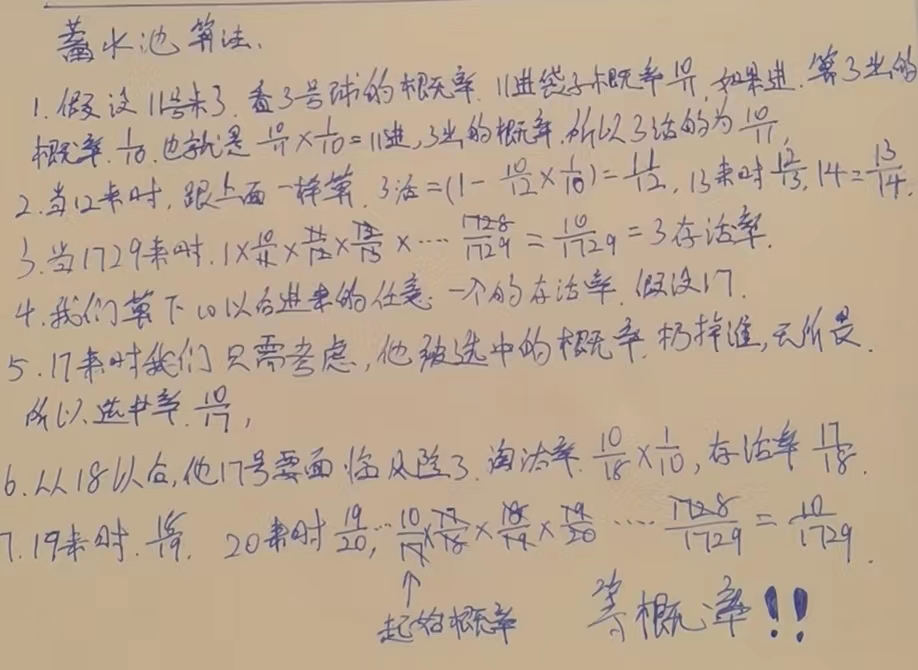 蓄水池算法.
1.假设11号来了.看3号球的概率.11进袋子概率10/11,如果进.第3出的
概率.1/10.也就是10/11×1/10=11进,3出的概率.所以3活的为10/11,
2.当12来时,跟上面一样算.3活=(1-10/12×1/10)=11/12,13来时12/13,14=13/14.
3.当1729来时.1×10/11×11/12×12/13×····1728/1729=10/1729=3存活率.
4.我们算下10以后进来的任意.一个的存活率.假设17.
5.17来时我们只需考虑,他被选中的概率.扔掉谁,无所谓.
所以.选中率.10/17,
6.从18以后,他17号要面临风险了.淘汰率.10/18×1/10,存活率17/18.
7.19来时.18/19. 20来时19/20,··10/17×17/18×18/19×19/20····1728/1729=10/1729.
↑
起始概率 等概率!!